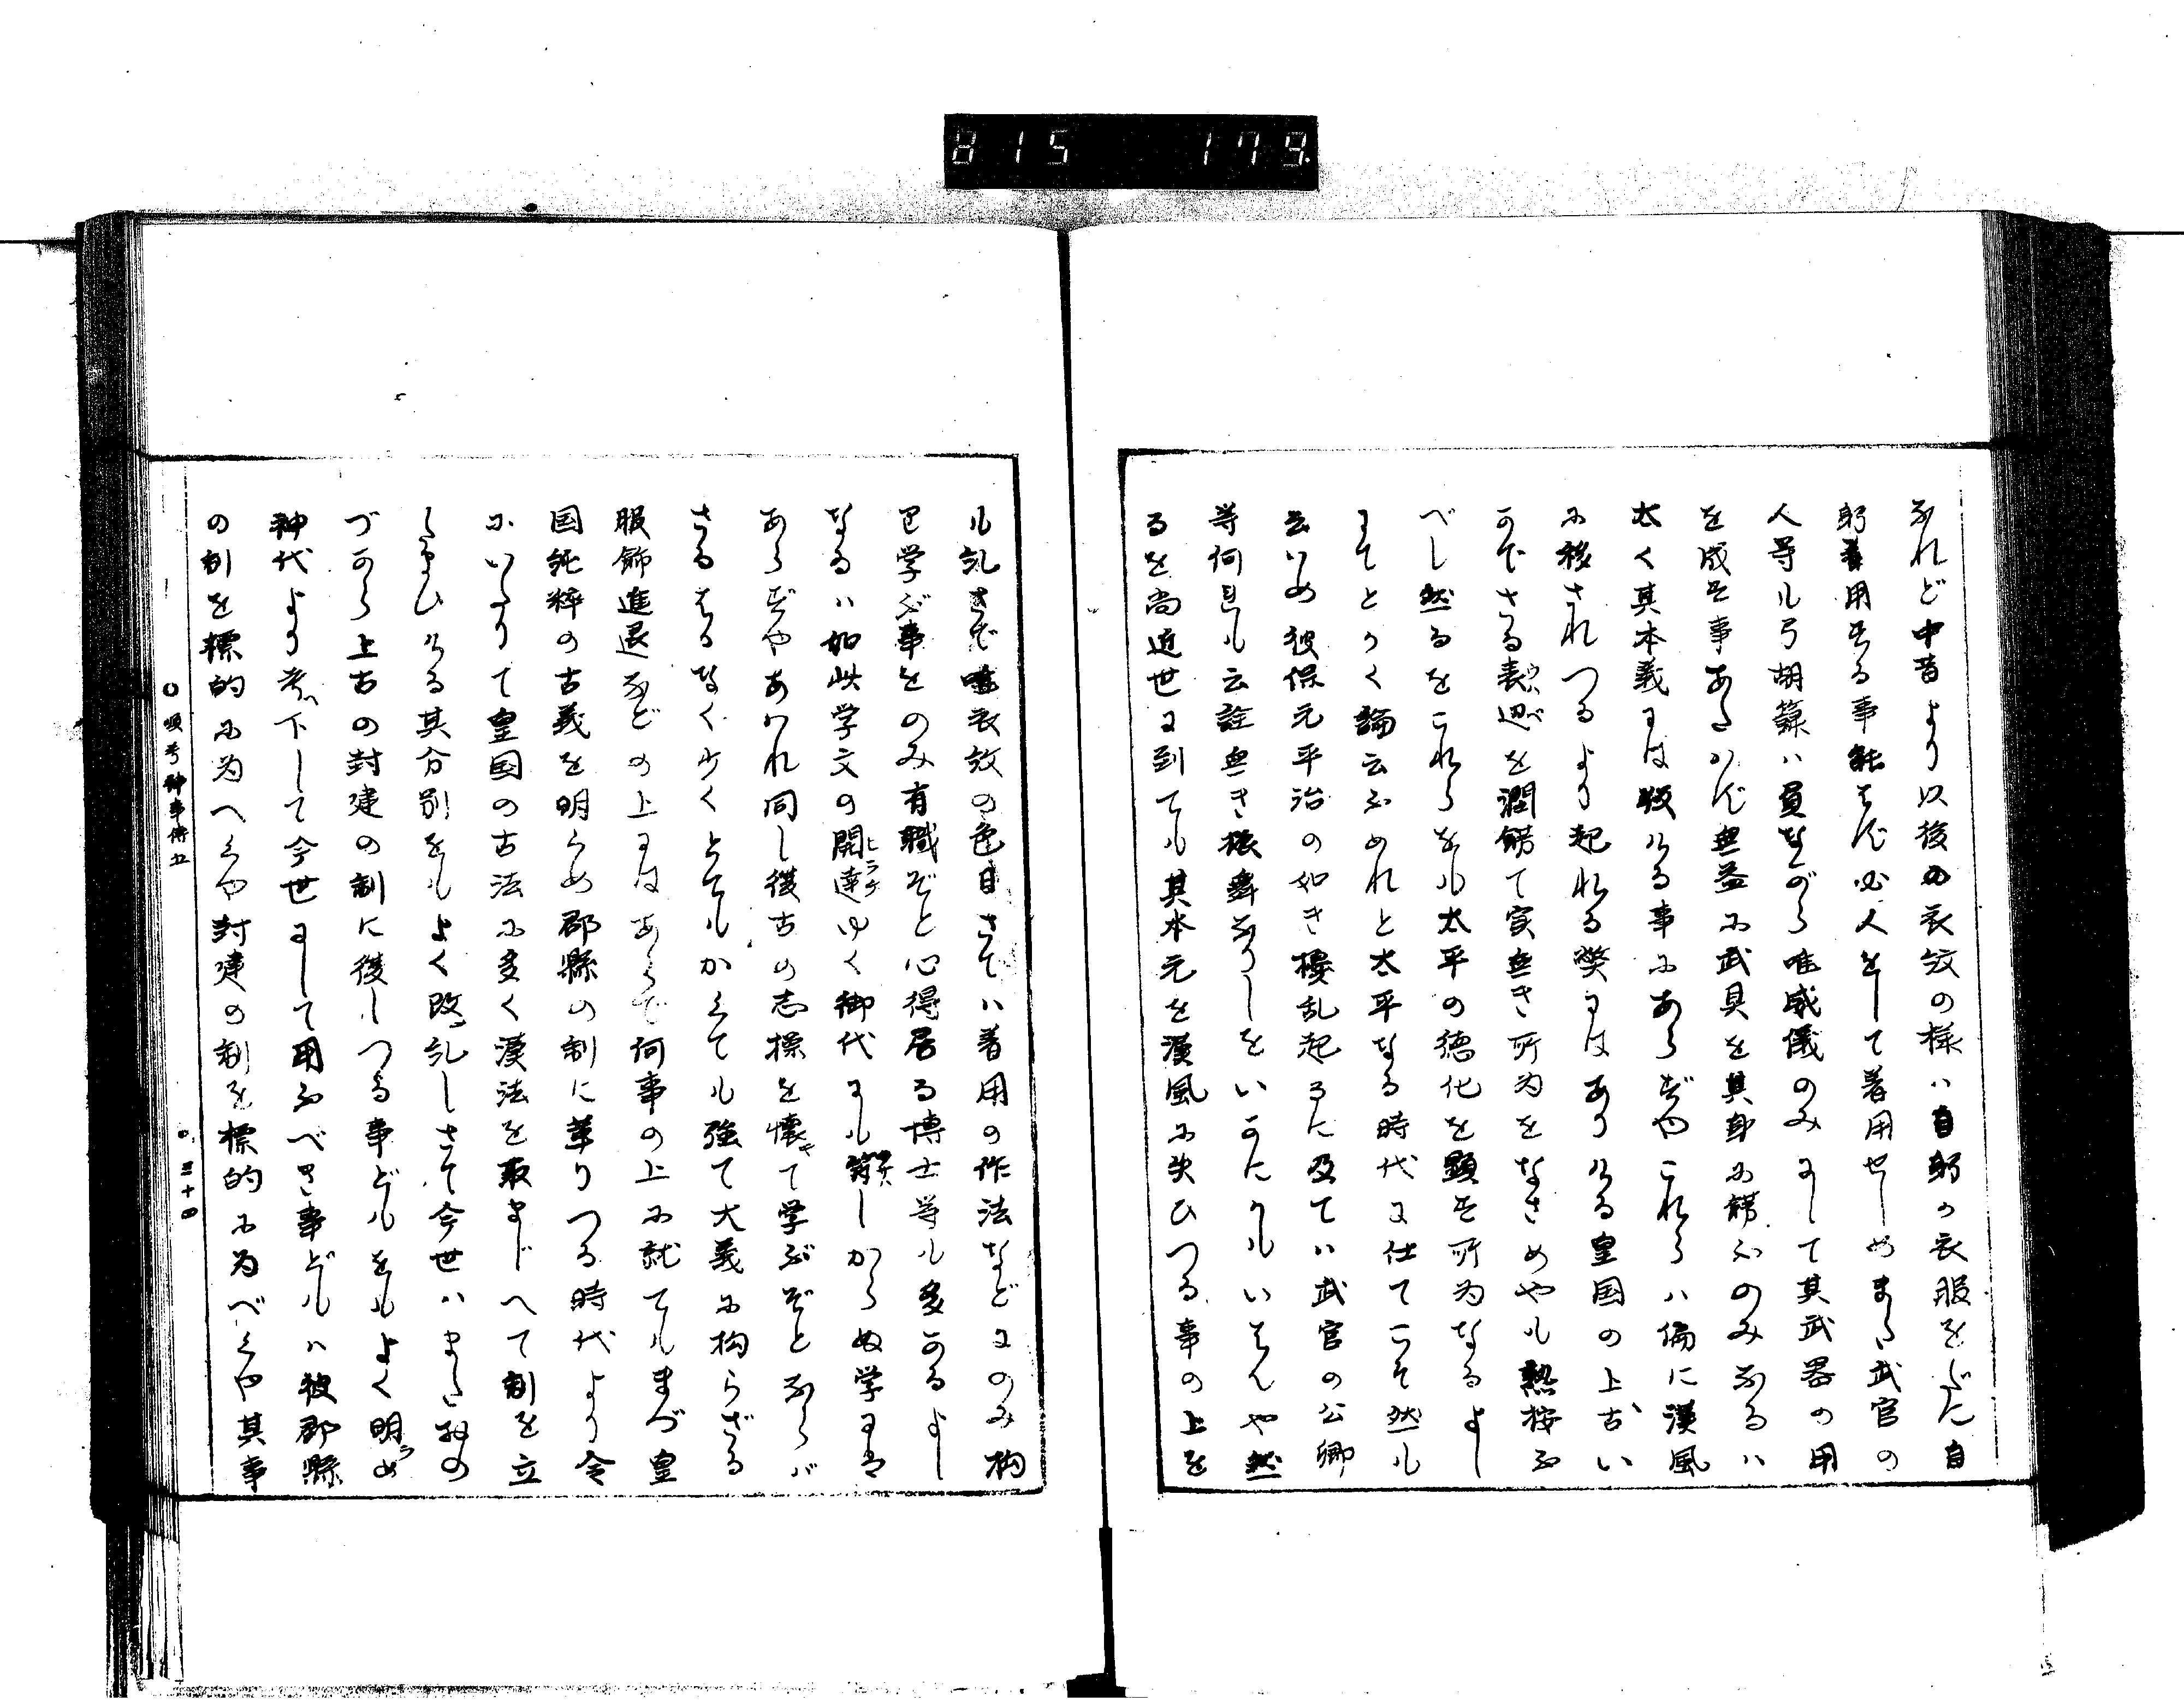 815 179.
なれど中昔より以後の衣紋の様ハ自躬の衣服をだに自
躬着用する事能はず必人をして着用せしめまた武官の
人等も弓胡籙ハ負ながら唯威儀のみにして其武器の用
を成す事あたハず無益に武具を其身に餝ふのみなるハ
太く其本義には放ける事にあらずやこれらハ偏に漢風
に移されつるより起れる弊にはありける皇国の上古い
かでさる表辺を潤餝て実無き所為をなさめやも熟按ふ
べし然るをこれらをも太平の徳化を顕す所為なるよし
にてとかく論云ふめれと太平なる時代に仕てこそ然も
云いめ彼保元平治の如き擾乱起るに及てハ武官の公卿
等何とも云詮無き振舞なりしをいかにかもいはんや然
るを尚近世に到ても其本元を漢風に失ひつる事の上を
も糺さで唯衣紋の色目さてハ着用の作法などにのみ拘
り学ぶ事をのみ有職ぞと心得居る博士等も多かるよし
なるハ如此学文の開達ゆく御代にも似しからぬ学には
あらずやあはれ同し復古の志操を懐て学ぶぞとならバ
さるはるなく少くとてもかくても強て大義に拘らざる
服飾進退などの上にはあらで何事の上に就てもまづ皇
国純粋の古義を明らめ郡縣の制に革りつる時代より令
にいたりて皇国の古法に多く漢法を取まじへて制を立
たまひける其分別をもよく改糺しさて今世ハまたおの
づから上古の封建の制に復しつる事どもをもよく明め
神代より考下して今世にして用ふべき事どもハ彼郡縣
の制を標的に為べくや封建の制を標的に為べくや其事
〇頭書神事傳五
〇三十四